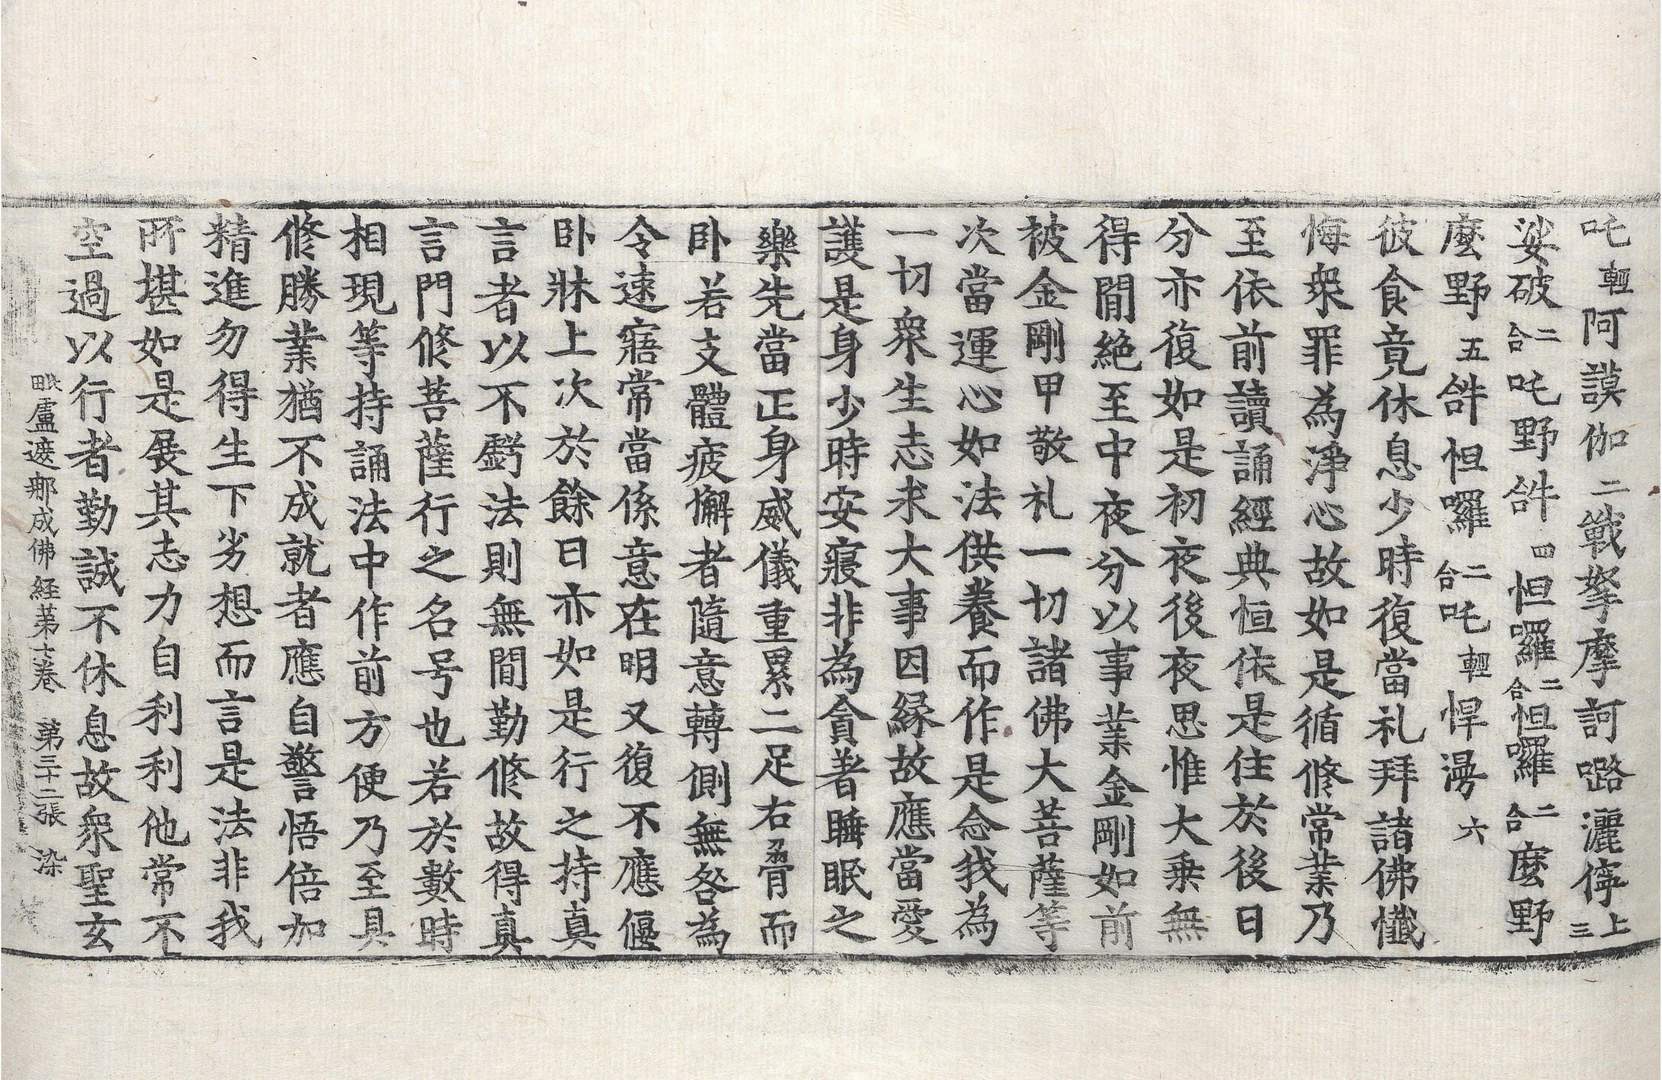 吒輕阿謨伽二戰拏摩訶路灑儜上三
娑破二合吒野𤙖四怛囉二合怛囉二合麼野
麼野五𤙖怛囉二合吒輕悍漫六
彼食竟休息少時復當礼拜諸佛懺
悔衆罪為淨心故如是循修常業乃
至依前讀誦經典恒依是住於後日
分亦復如是初夜後夜思惟大乘無
得閒絶至中夜分以事業金剛如前
被金剛甲敬礼一切諸佛大菩薩等
次當運心如法供養而作是念我為
一切衆生志求大事因緣故應當愛
護是身少時安寢非為貪著睡眠之
樂先當正身威儀重累二足右脅而
卧若支體疲懈者隨意轉側無咎為
令速寤常當係意在明又復不應偃
卧牀上次於餘日亦如是行之持真
言者以不虧法則無閒勤修故得真
言門修菩薩行之名号也若於數時
相現等持誦法中作前方便乃至具
修勝業猶不成就者應自警悟倍加
精進勿得生下劣想而言是法非我
所堪如是展其志力自利利他常不
空過以行者勤誠不休息故衆聖玄
毗盧遮那成佛経苐七卷　第三十二張　染